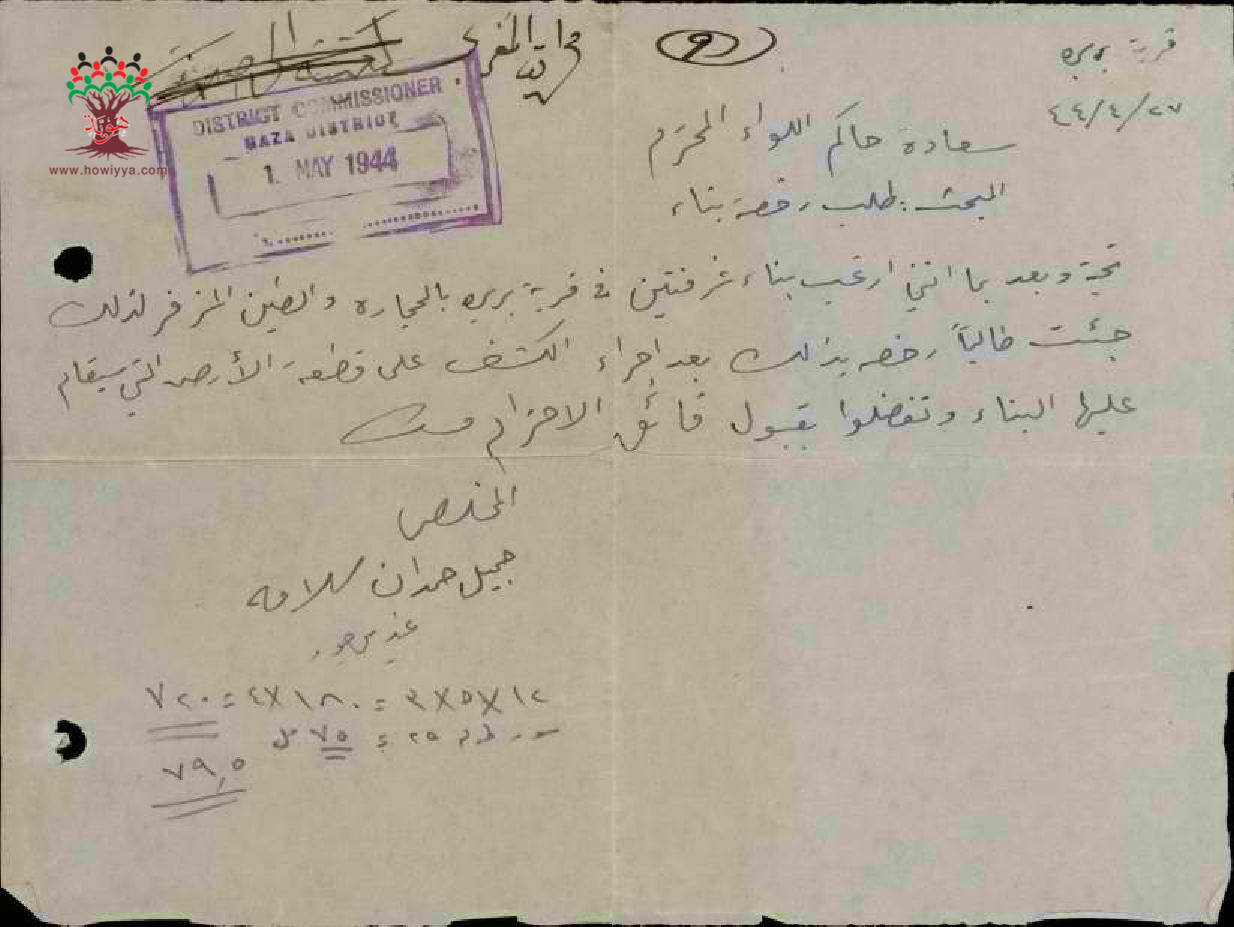 قرية بربره
٢٧/٤/٤٤
سعادة حاكم اللواء المحترم
البحث: طلب رخصة بناء
تحية وبعد بما انني ارغب بناء غرفتين في قرية بربره بالحجاره والطين المزفر لذلك
جئت طالباً رخصه بذلك بعد اجراء الكشف على قطعة الأرض التي سيقام
عليها البناء وتفضلوا بقبول فائق الاحترام
المخلص
جميل حمدان سلامه
١٢X٥X٣ = ١٨٠X٤ = ٧٢٠
سور ٢٥ = ٧٥
٧٩,٥
DISTRICT COMMISSIONER
GAZA DISTRICT
1. MAY 1944
هوية
www.howiyya.com